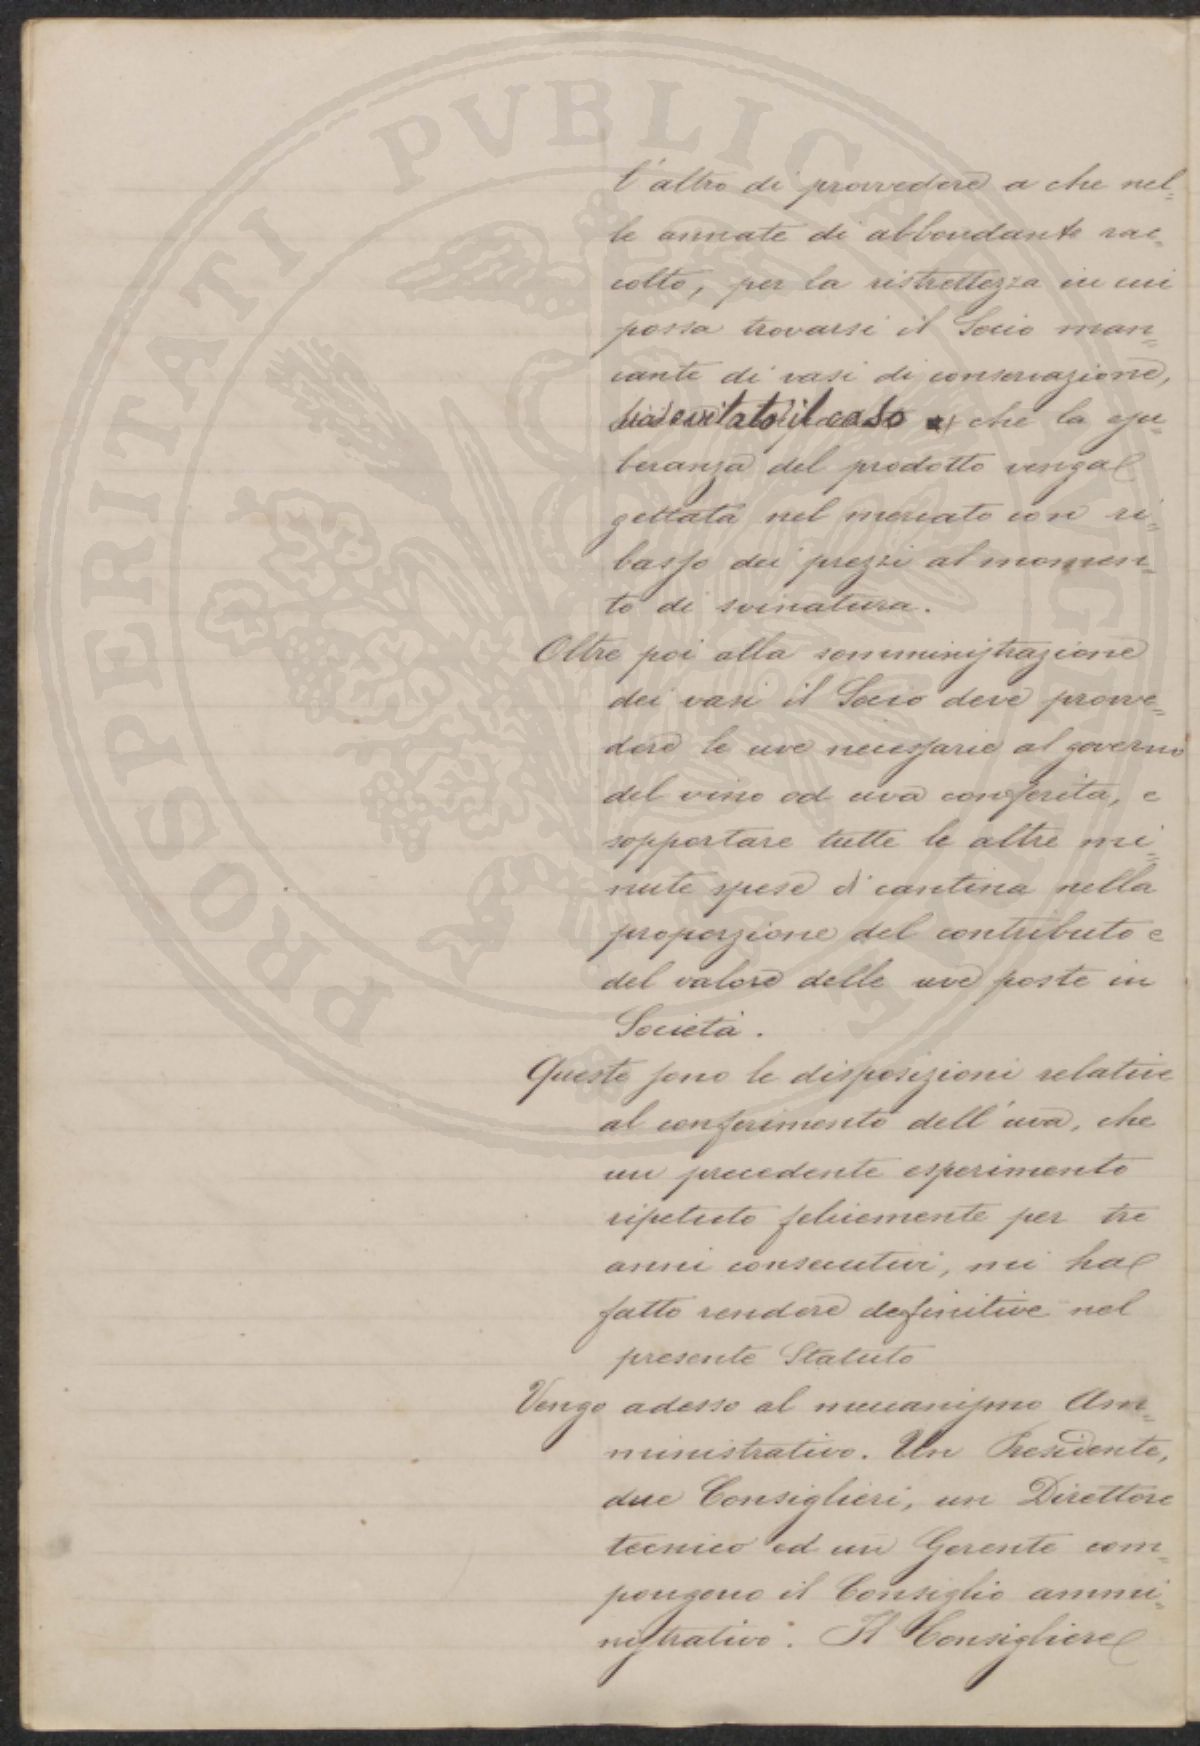 PROSPERITATI PVBLICAE AVGENDAE
l'altro di provvedere a che nel=
le annate di abbondante rac=
colto, per la ristrettezza in cui
possa trovarsi il Socio man=
cante di vasi di conservazione,
sia evitato il caso che la esu=
beranza del prodotto venga
gettata nel mercato con ri=
basso dei prezzi al momen=
to di svinatura.
Oltre poi alla somministrazione
dei vasi il Socio deve provve=
dere le uve necessarie al governo
del vino od uva conferita, e
sopportare tutte le altre mi=
nute spese di cantina nella
proporzione del contributo e
del valore delle uve poste in
Società.
Queste sono le disposizioni relative
al conferimento dell'uva, che
un precedente esperimento
ripetuto felicemente per tre
anni consecutivi, mi ha
fatto rendere definitive nel
presente Statuto
Vengo adesso al meccanismo Am=
ministrativo. Un Presidente,
due Consiglieri, un Direttore
tecnico ed un Gerente com=
pongono il Consiglio ammi=
nistrativo. Il Consigliere